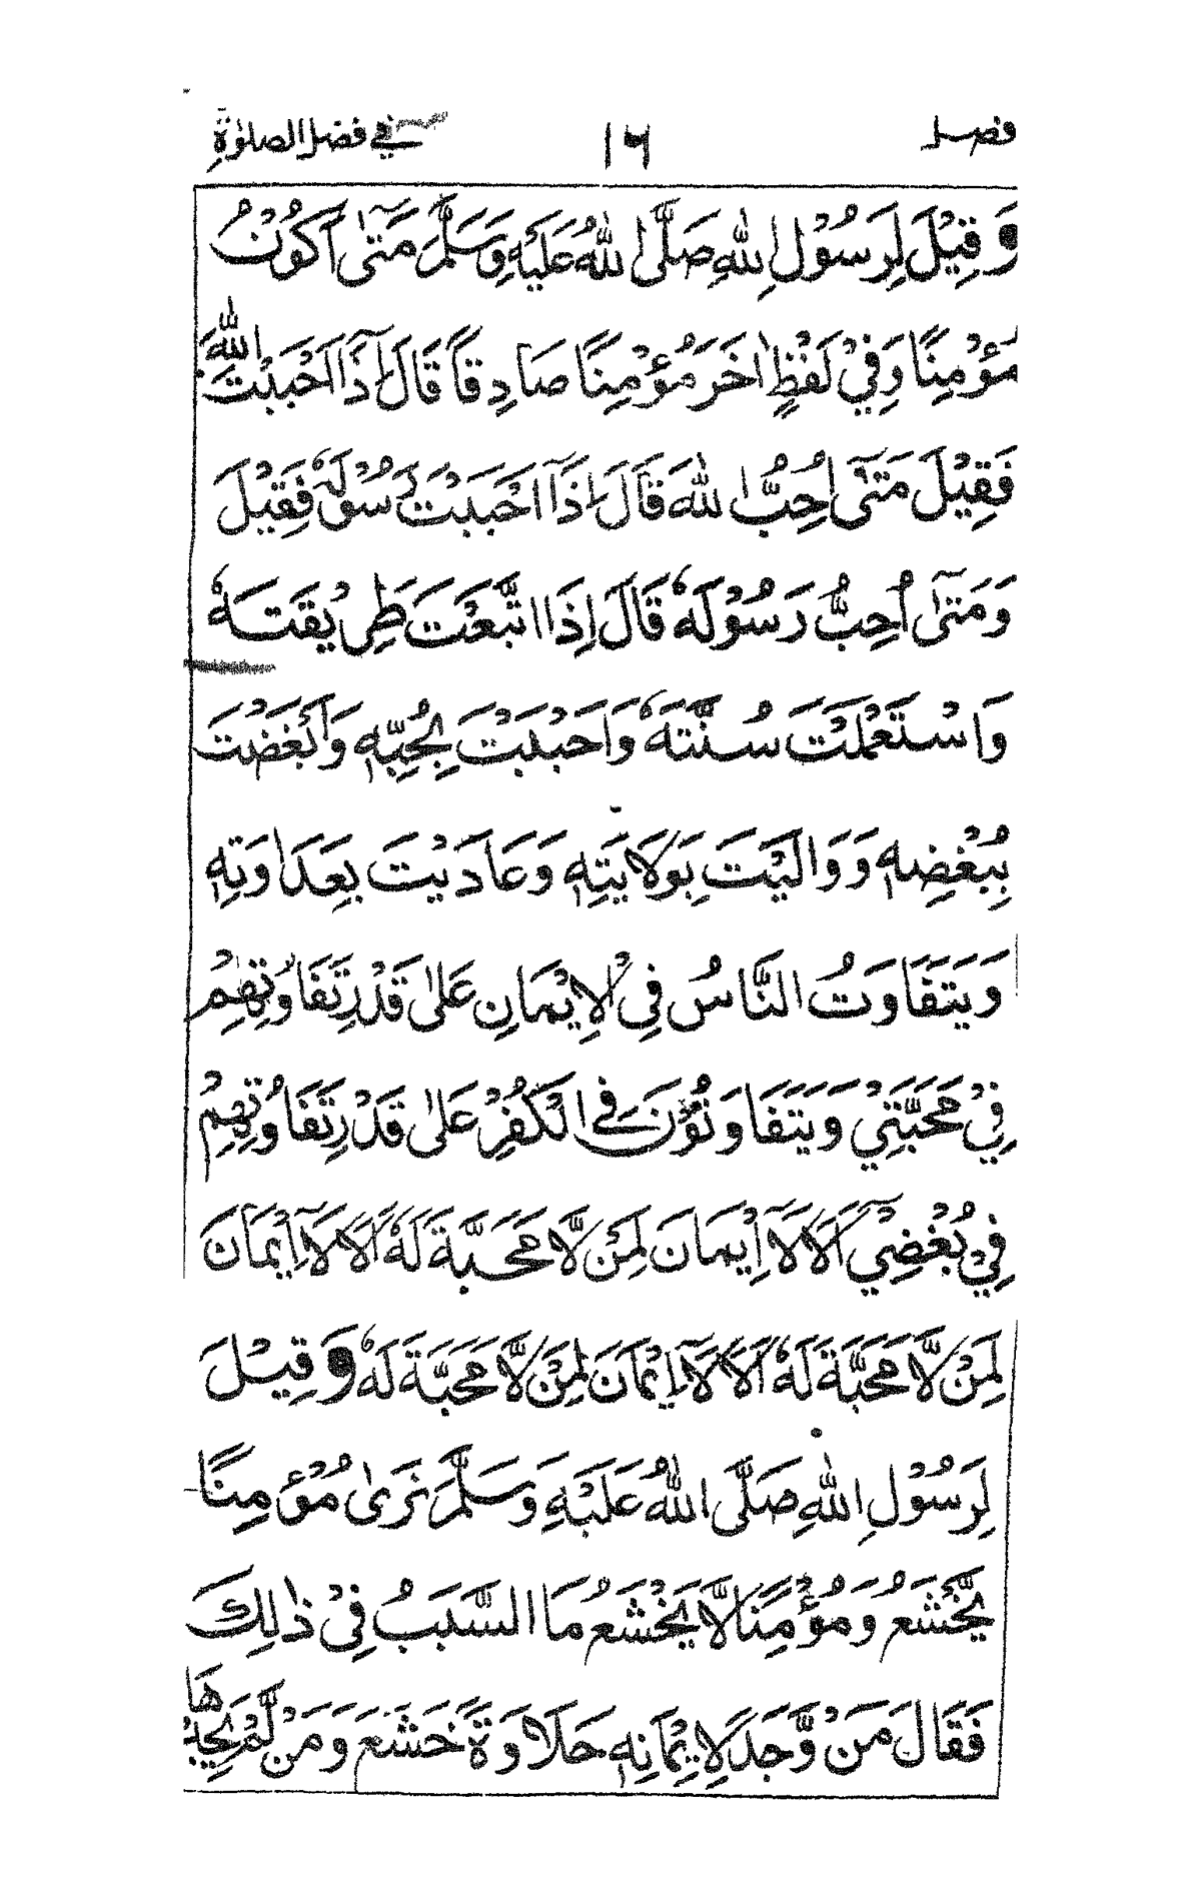 فصل ١٦ في فضل الصلوٰة
وَقِيْلَ لِرَسُوْلِ اللهِ صَلَّى اللهُ عَلَيْهِ وَسَلَّمَ مَتٰٓى اَكُوْنُ
مُؤْمِنًا وَفِيْ لَفْظٍ اٰخَرَ مُؤْمِنًا صَادِقًا قَالَ اِذَآ اَحْبَبْتَ اللهَ
فَقِيْلَ مَتٰٓى اُحِبُّ اللهَ قَالَ اِذَآ اَحْبَبْتَ رَسُوْلَهٗ فَقِيْلَ
وَمَتٰٓى اُحِبُّ رَسُوْلَهٗ قَالَ اِذَا اتَّبَعْتَ طَرِيْقَتَهٗ
وَاسْتَعْمَلْتَ سُنَّتَهٗ وَاَحْبَبْتَ بِحُبِّهٖ وَاَبْغَضْتَ
بِبُغْضِهٖ وَوَالَيْتَ بِوَلَايَتِهٖ وَعَادَيْتَ بِعَدَاوَتِهٖ
وَيَتَفَاوَتُ النَّاسُ فِي الْاِيْمَانِ عَلٰى قَدْرِ تَفَاوُتِهِمْ
فِيْ مَحَبَّتِيْ وَيَتَفَاوَتُوْنَ فِي الْكُفْرِ عَلٰى قَدْرِ تَفَاوُتِهِمْ
فِيْ بُغْضِيْ اَلَا لَآ اِيْمَانَ لِمَنْ لَّا مَحَبَّةَ لَهٗ اَلَا لَآ اِيْمَانَ
لِمَنْ لَّا مَحَبَّةَ لَهٗ اَلَا لَآ اِيْمَانَ لِمَنْ لَّا مَحَبَّةَ لَهٗ وَقِيْلَ
لِرَسُوْلِ اللهِ صَلَّى اللهُ عَلَيْهِ وَسَلَّمَ نَرٰى مُؤْمِنًا
يَّخْشَعُ وَمُؤْمِنًا لَّا يَخْشَعُ مَا السَّبَبُ فِيْ ذٰلِكَ
فَقَالَ مَنْ وَّجَدَ لِاِيْمَانِهٖ حَلَاوَةً خَشَعَ وَمَنْ لَّمْ يَجِدْهَا